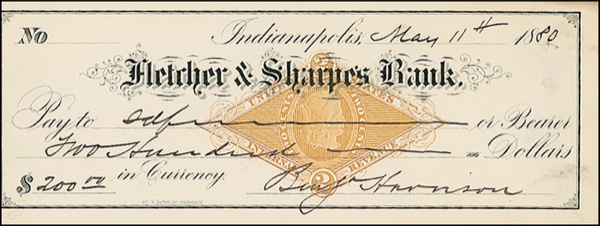 No
Indianapolis, May 11th 1880
Fletcher & Sharpes Bank,
UNITED STATES
Pay to self or Bearer
TWO CENTS TWO CENTS
Two Hundred Dollars
INTERNAL REVENUE
$200.00 in Currency. Benj Harrison
2
2